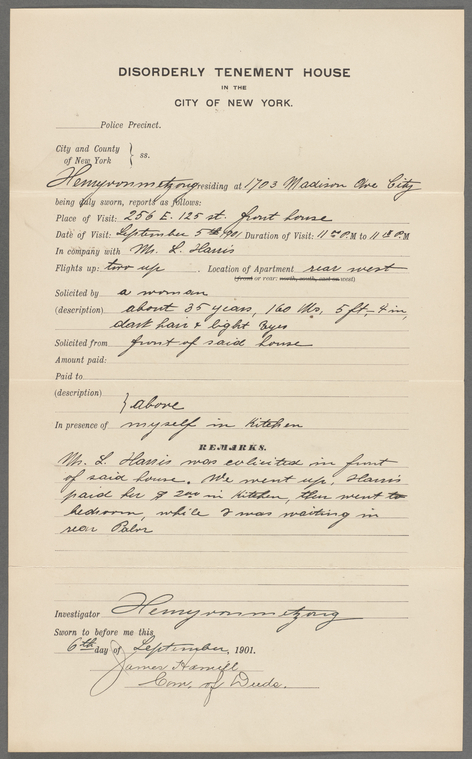 DISORDERLY TENEMENT HOUSE
IN THE
CITY OF NEW YORK.
Police Precinct.
City and County
of New York } ss.
residing at 1703 Madison Ave City
being duly sworn, reports as follows:
Place of Visit: 256 E. 125 st. front house
Date of Visit: September 5th/01 Duration of Visit: P.M to P.M
In company with Mr. L. Harris
Flights up: two up Location of Apartment rear west
(front or rear: north, south, east or west)
Solicited by a woman
(description) about 35 years, 160 lbs, 5 ft-4 in,
dark hair & light Eyes
Solicited from front of said house
Amount paid:
Paid to
(description) } above
In presence of myself in Kitchen
REMARKS.
Mr. L. Harris was in front
of said house. We went up, Harris
paid her $ 2.00 in Kitchen, then went to
bedroom, while I was waiting in
rear
Investigator
Sworn to before me this
6th day of September, 1901.
James Hamill
Com. of Deeds.